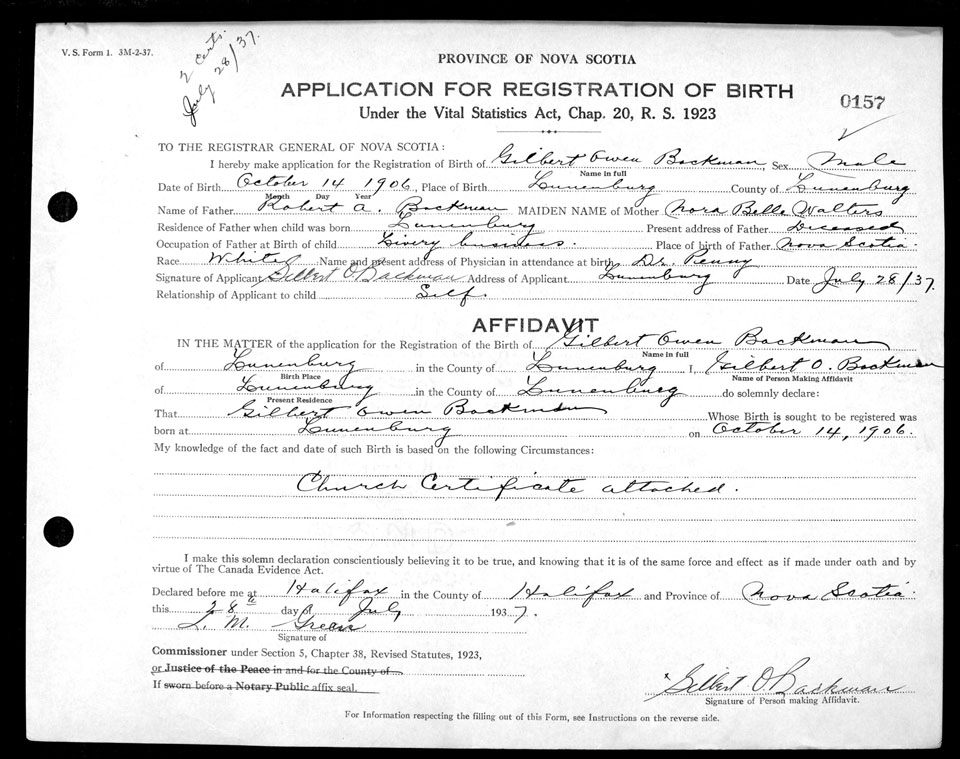 V. S. Form 1. 3M-2-37.
2 Certs.
July 28/37.
PROVINCE OF NOVA SCOTIA
APPLICATION FOR REGISTRATION OF BIRTH
0157
Under the Vital Statistics Act, Chap. 20, R. S. 1923
TO THE REGISTRAR GENERAL OF NOVA SCOTIA:
I hereby make application for the Registration of Birth of Gilbert Owen Backman, Sex Male
Name in full
Date of Birth October 14 1906, Place of Birth Lunenburg County of Lunenburg
Month Day Year
Name of Father Robert A. Backman MAIDEN NAME of Mother Nora Belle Walters
Residence of Father when child was born Lunenburg Present address of Father Diceased
Occupation of Father at Birth of child Livery business. Place of birth of Father Nova Scotia.
Race White Name and present address of Physician in attendance at birth Dr. Penny
Signature of Applicant Gilbert O Backman Address of Applicant Lunenburg Date July 28/37.
Relationship of Applicant to child Self.
AFFIDAVIT
IN THE MATTER of the application for the Registration of the Birth of Gilbert Owen Backman
Name in full
of Lunenburg in the County of Lunenburg I, Gilbert O. Backman
Birth Place Name of Person Making Affidavit
of Lunenburg in the County of Lunenburg do solemnly declare:
Present Residence
That Gilbert Owen Backman Whose Birth is sought to be registered was
born at Lunenburg on October 14, 1906.
My knowledge of the fact and date of such Birth is based on the following Circumstances:
Church Certificate attached.
I make this solemn declaration conscientiously believing it to be true, and knowing that it is of the same force and effect as if made under oath and by
virtue of The Canada Evidence Act.
Declared before me at Halifax in the County of Halifax and Province of Nova Scotia.
this 28th day of July 1937.
L. M. Green
Signature of
Commissioner under Section 5, Chapter 38, Revised Statutes, 1923,
or Justice of the Peace in and for the County of
If sworn before a Notary Public affix seal.
x Gilbert O Backman
Signature of Person making Affidavit.
For Information respecting the filling out of this Form, see Instructions on the reverse side.